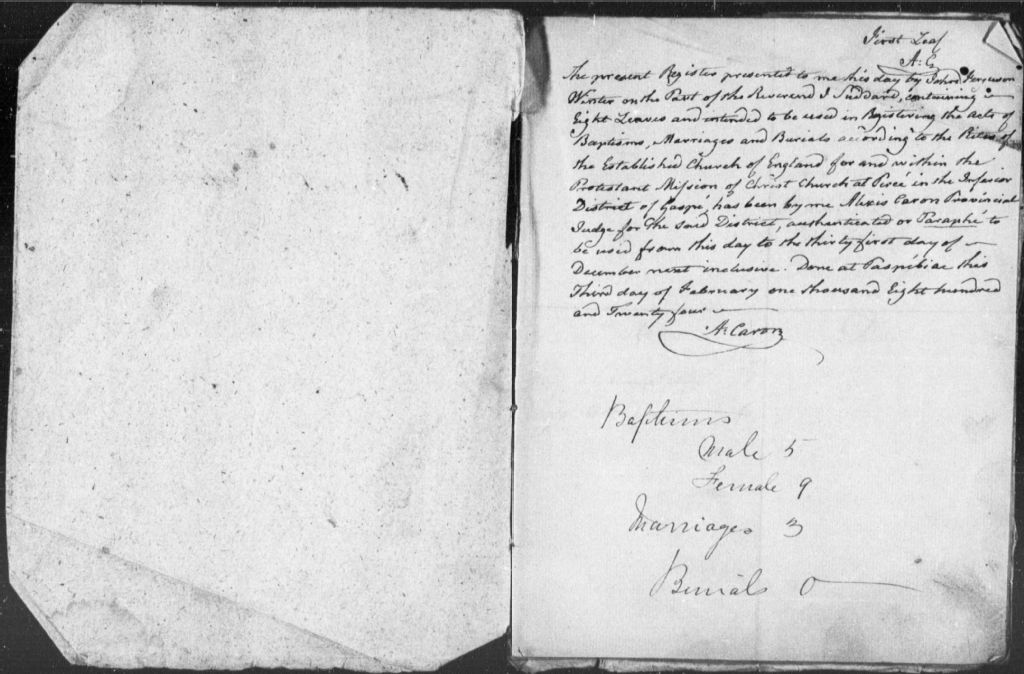 First Leaf
A. C.
The present Register presented to me this day by John Ferguson
Winter on the Part of the Reverend J Suddard, containing
Eight Leaves and intended to be used in Registering the acts of
Baptisms, Marriages and Burials according to the Rites of
the Established Church of England for and within the
Protestant Mission of Christ Church at Percé in the Inferior
District of Gaspé, has been by me Alexis Caron Provincial
Judge for the said District, authenticated or Paraphé to
be used from this day to the thirty first day of
December next inclusive. Done at Paspébiac this
Third day of February one thousand Eight hundred
and Twenty four
A. Caron
Baptisms
Male 5
Female 9
Marriages 3
Burials 0